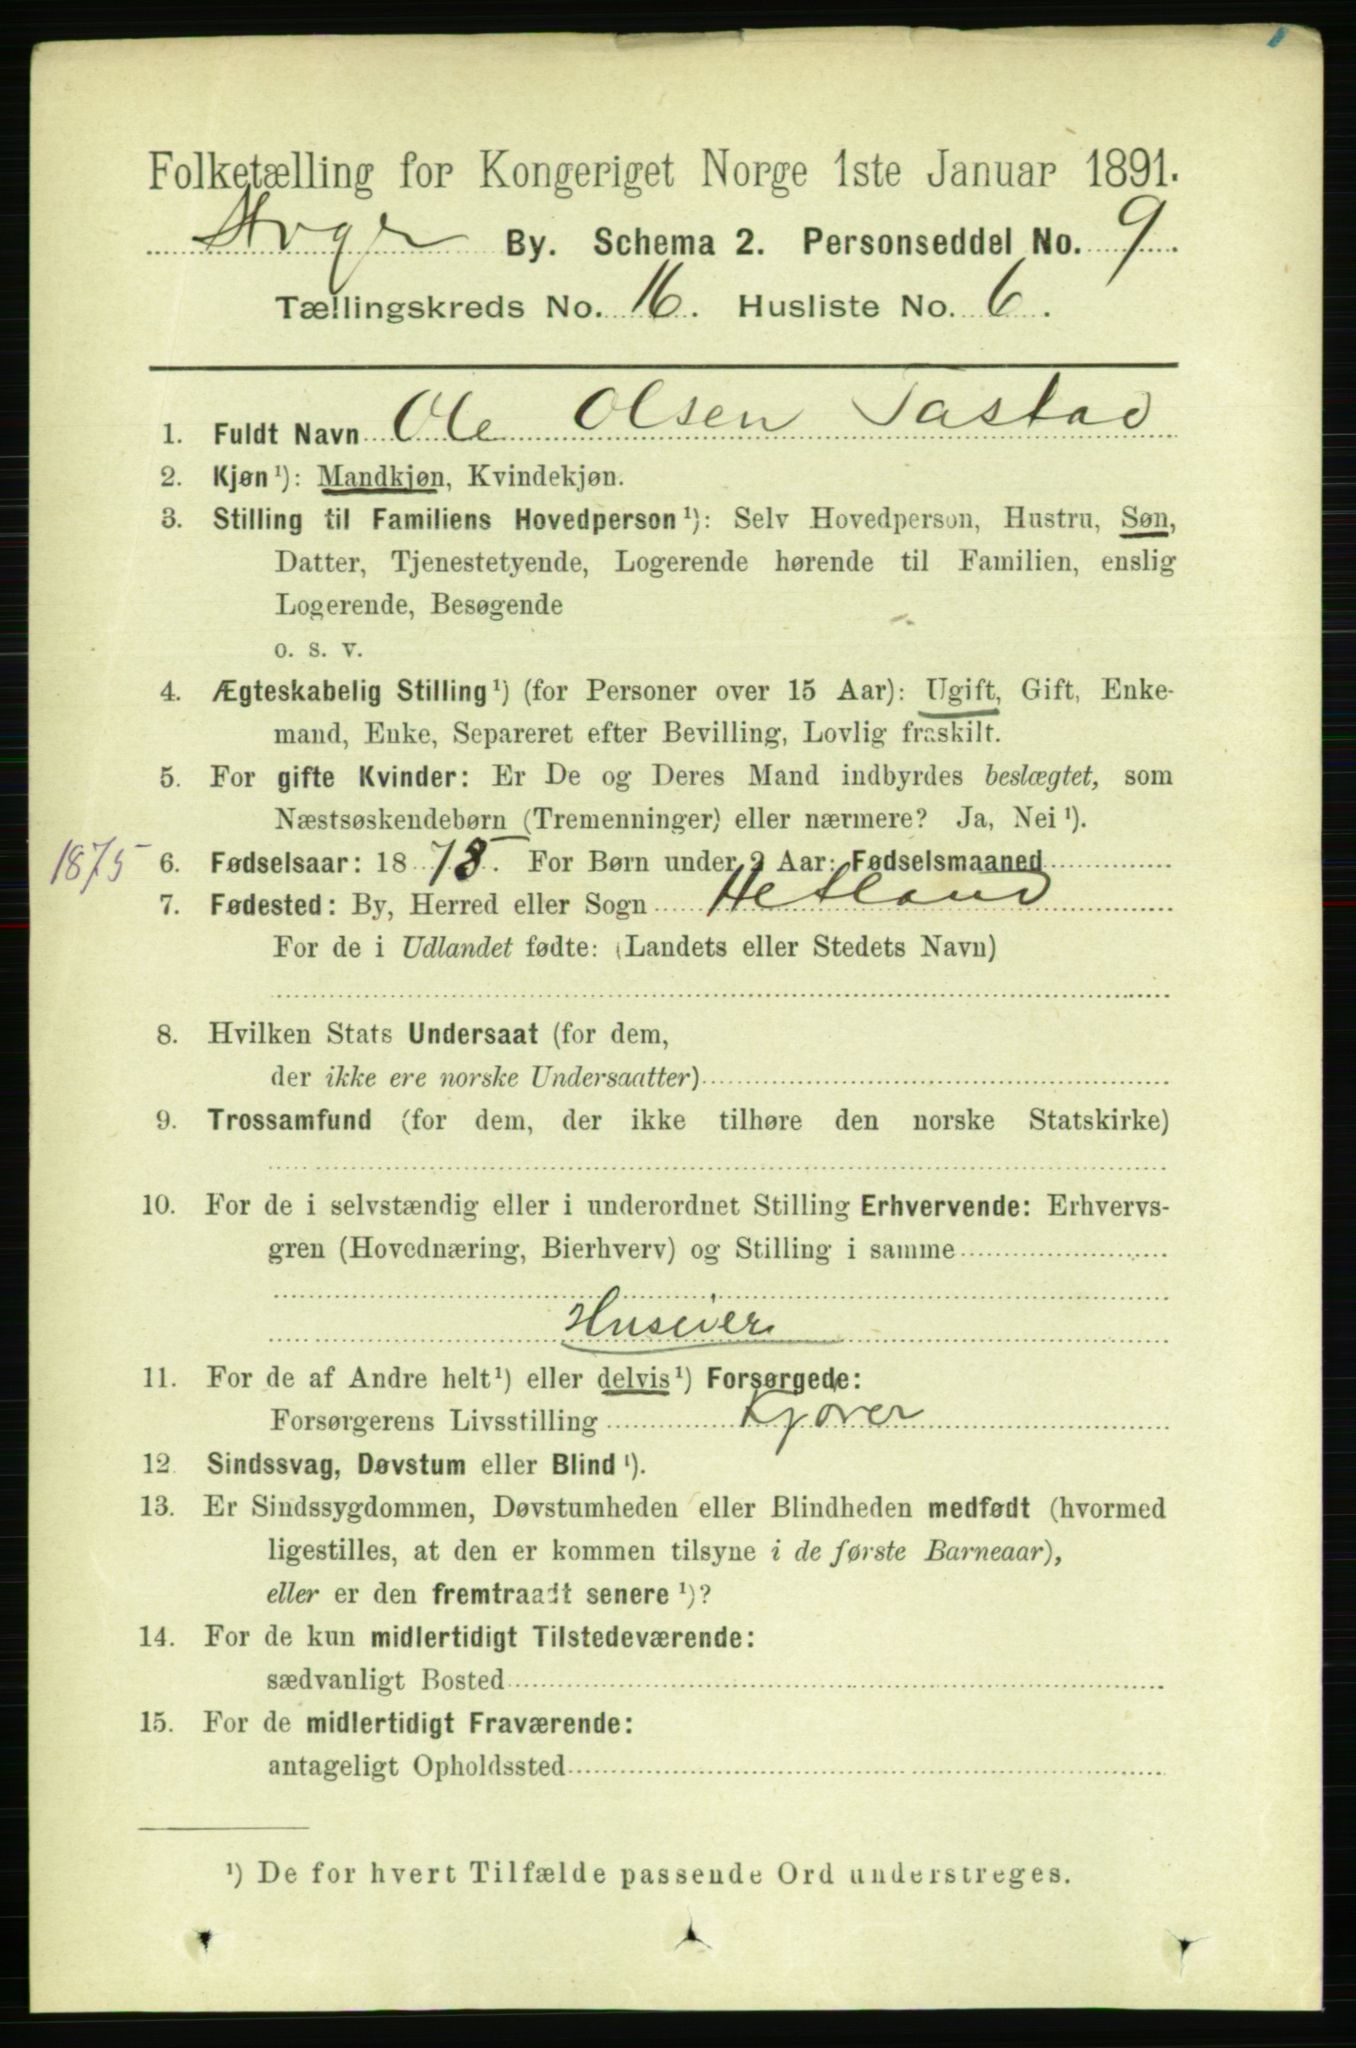 Folketælling for Kongeriget Norge 1ste Januar 1891.
By. Schema 2. Personseddel No. 9.
Tællingskreds No. 16. Husliste No. 6.
1. Fuldt Navn Ole Olsen Tastad
2. Kjøn¹): Mandkjøn, Kvindekjøn.
3. Stilling til Familiens Hovedperson¹): Selv Hovedperson, Hustru, Søn,
Datter, Tjenestetyende, Logerende hørende til Familien, enslig
Logerende, Besøgende
o. s. v.
4. Ægteskabelig Stilling¹) (for Personer over 15 Aar): Ugift, Gift, Enke-
mand, Enke, Separeret efter Bevilling, Lovlig fraskilt.
5. For gifte Kvinder: Er De og Deres Mand indbyrdes beslægtet, som
Næstsøskendebørn (Tremenninger) eller nærmere? Ja, Nei¹).
1875 6. Fødselsaar: 1875. For Børn under 2 Aar: Fødselsmaaned
7. Fødested: By, Herred eller Sogn Hetland
For de i Udlandet fødte: (Landets eller Stedets Navn)
8. Hvilken Stats Undersaat (for dem,
der ikke ere norske Undersaatter)
9. Trossamfund (for dem, der ikke tilhøre den norske Statskirke)
10. For de i selvstændig eller i underordnet Stilling Erhvervende: Erhvervs-
gren (Hovednæring, Bierhverv) og Stilling i samme
Huseier
11. For de af Andre helt¹) eller delvis¹) Forsørgede:
Forsørgerens Livsstilling Kjører
12. Sindssvag, Døvstum eller Blind¹).
13. Er Sindssygdommen, Døvstumheden eller Blindheden medfødt (hvormed
ligestilles, at den er kommen tilsyne i de første Barneaar),
eller er den fremtraadt senere¹)?
14. For de kun midlertidigt Tilstedeværende:
sædvanligt Bosted
15. For de midlertidigt Fraværende:
antageligt Opholdssted
¹) De for hvert Tilfælde passende Ord understreges.